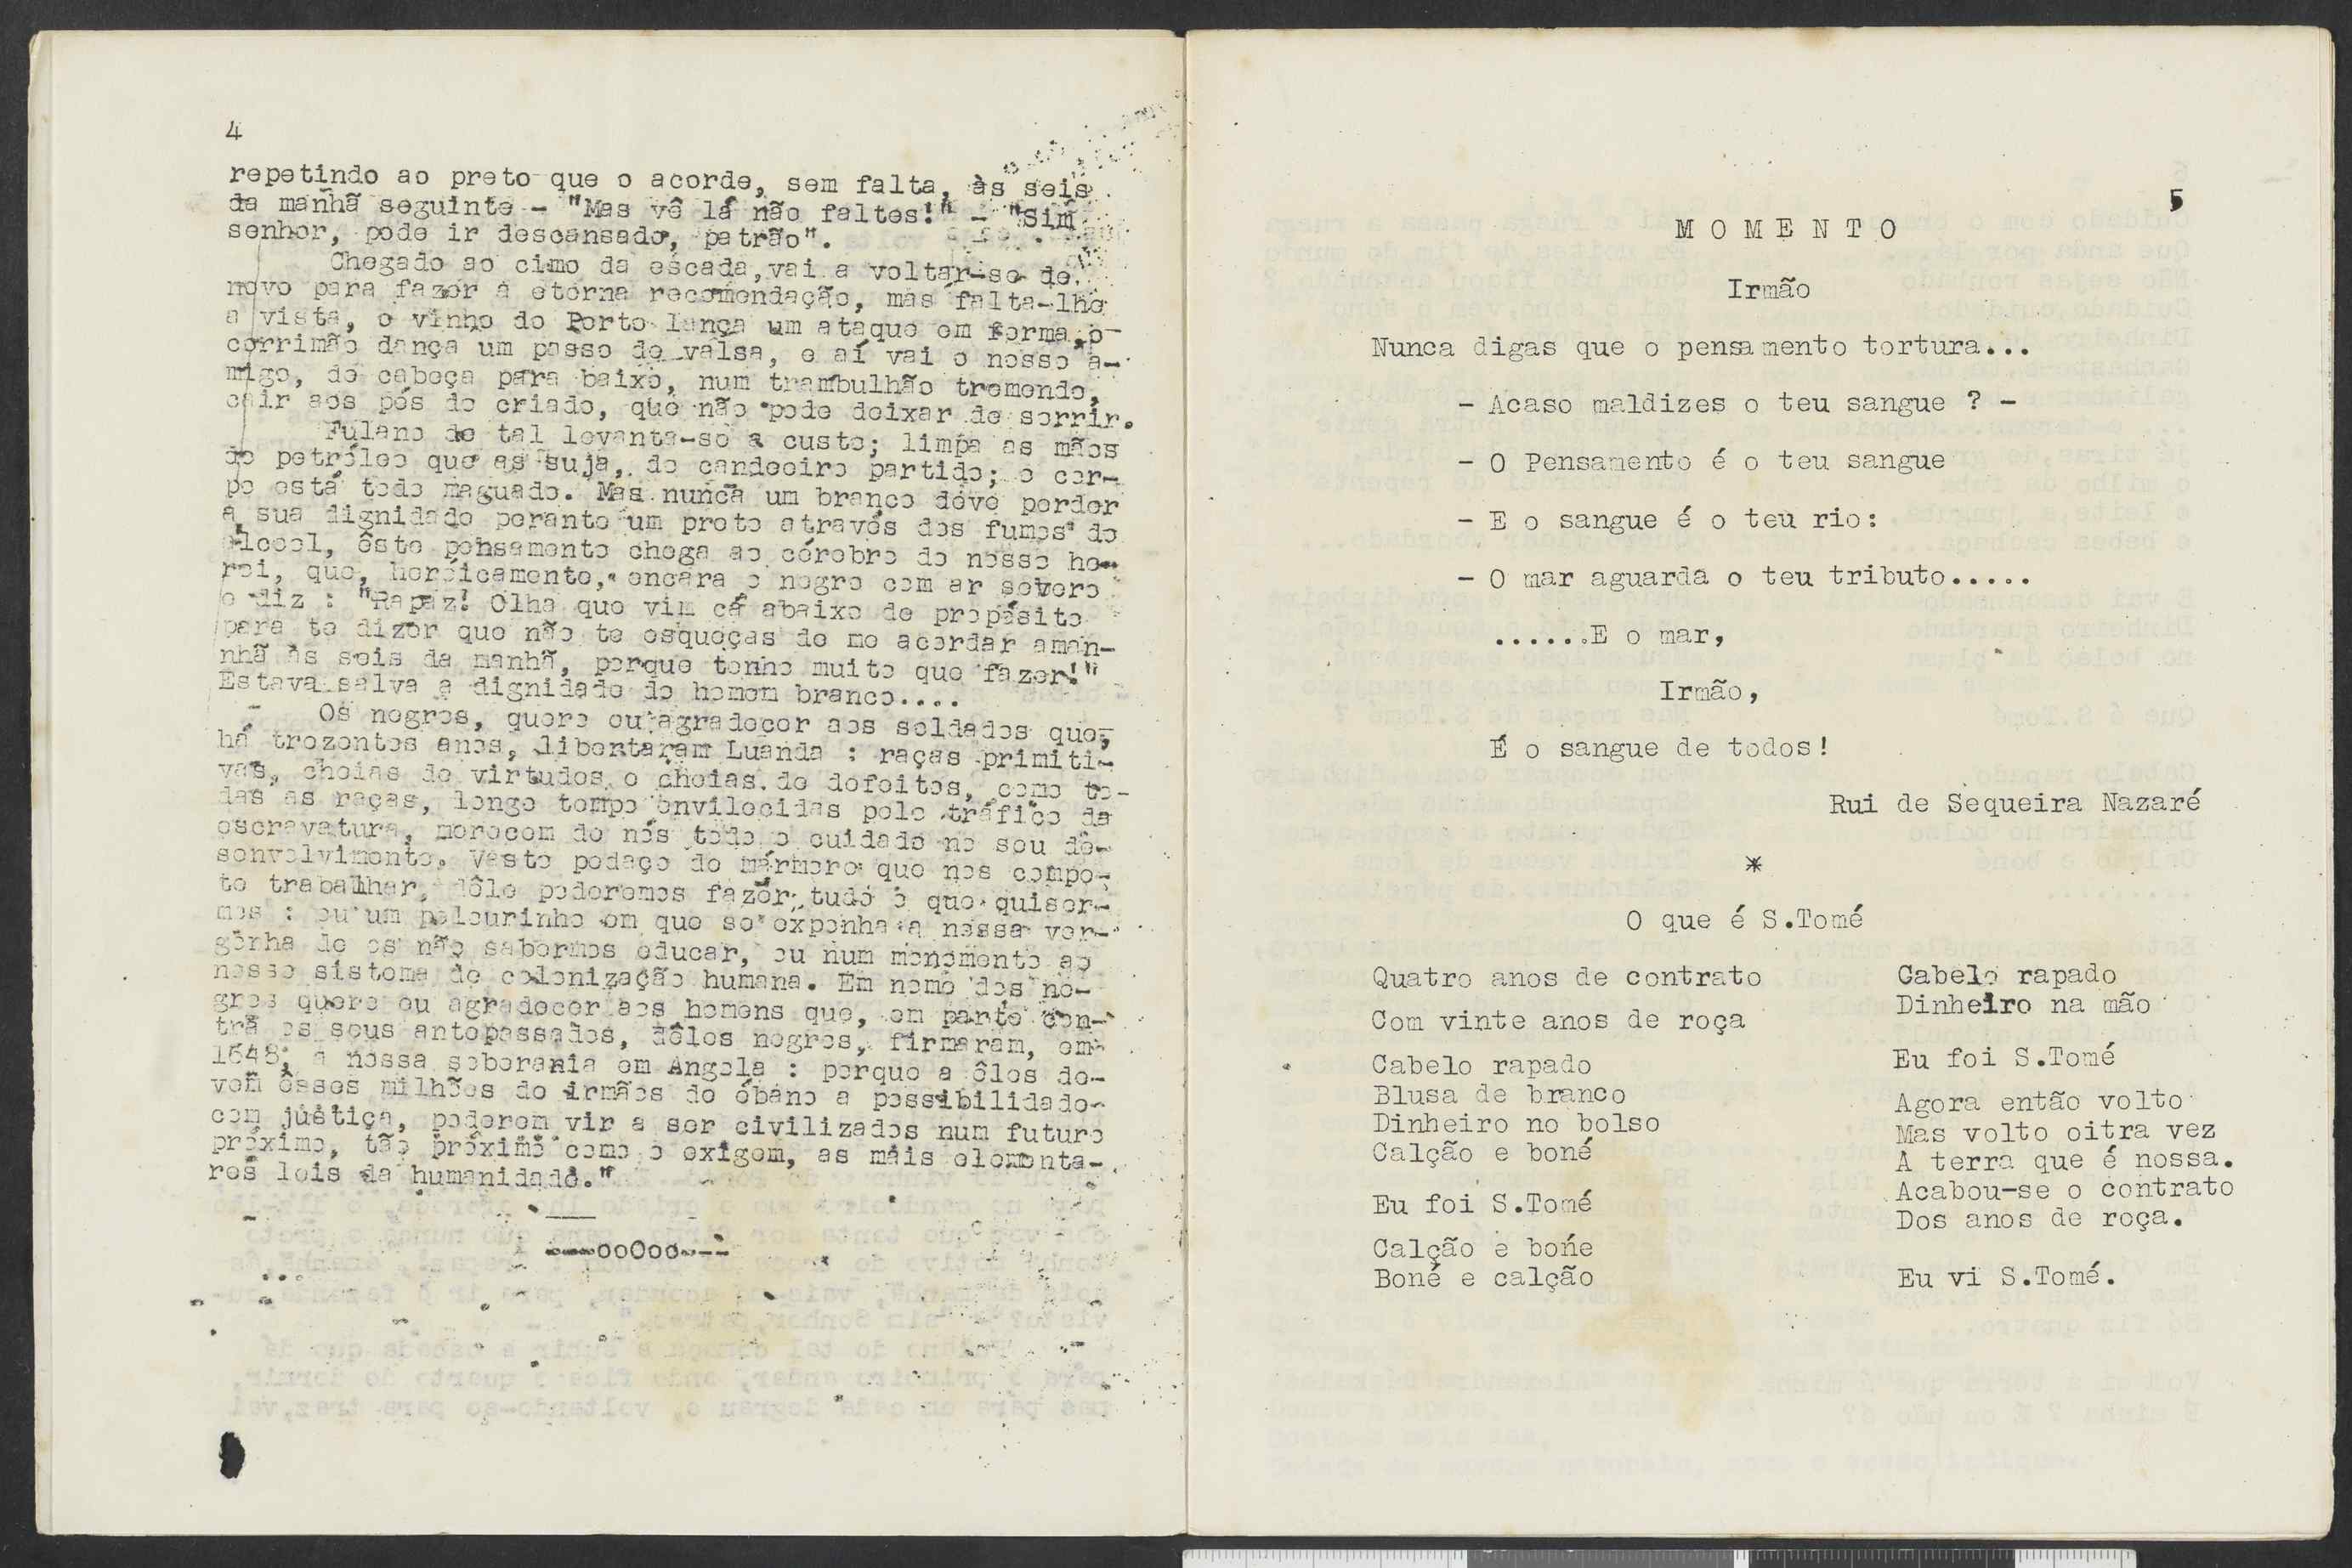 4
repetindo ao preto que o acorde, sem falta, às seis
da manhã seguinte - "Mas vê lá não faltes!" - "Sim
senhor, pode ir descansado, patrão".
Chegado ao cimo da escada, vai a voltar-se de
novo para fazer a eterna recomendação, mas falta-lhe
a vista, o vinho do Porto lança um ataque em forma, o
corrimão dança um passo de valsa, e aí vai o nosso a-
migo, de cabeça para baixo, num trambulhão tremendo,
cair aos pés do criado, que não pode deixar de sorrir.
Fulano de tal levanta-se a custo; limpa as mãos
do petróleo que as suja, do candeeiro partido; o cor-
po está todo maguado. Mas nunca um branco deve perder
a sua dignidade perante um preto através dos fumos do
alcool, êste pensamento chega ao cérebro do nosso he-
roi, que, heróicamente, encara o negro com ar severo
e diz : "Rapaz! Olha que vim cá abaixo de propósito
para te dizer que não te esqueças de me acordar aman-
nhã às seis da manhã, porque tenho muito que fazer!"
Estava salva a dignidade do homem branco....
Os negros, quero eu agradecer aos soldados que,
há trezentos anos, libertaram Luanda : raças primiti-
vas, cheias de virtudes e cheias de defeitos, como to-
das as raças, longo tempo envilecidas pelo tráfico da
escravatura, merecem de nós todo o cuidado no seu de-
senvolvimento. Vasto pedaço de mármore que nos compe-
te trabalhar, dêle poderemos fazer tudo o que quiser-
mos : ou um pelourinho em que se exponha a nossa ver-
gonha de os não sabermos educar, ou num monomento ao
nosso sistema de colonização humana. Em nome dos ne-
gros quero eu agradecer aos homens que, em parte con-
tra os seus antepassados, dêles negros, firmaram, em
1648, a nossa soberania em Angola : porque a êles de-
vem êsses milhões de irmãos de ébano a possibilidade
com justiça, poderem vir a ser civilizados num futuro
próximo, tão próximo como o exigem, as mais elementa-
res leis da humanidade."
----ooOoo----
5
M O M E N T O
Irmão
Nunca digas que o pensamento tortura...
- Acaso maldizes o teu sangue ? -
- O Pensamento é o teu sangue
- E o sangue é o teu rio:
- O mar aguarda o teu tributo.....
......E o mar,
Irmão,
É o sangue de todos!
Rui de Sequeira Nazaré
*
O que é S.Tomé
Quatro anos de contrato
Com vinte anos de roça
Cabelo rapado
Blusa de branco
Dinheiro no bolso
Calção e boné
Eu foi S.Tomé
Calção e bońe
Boné e calção
Cabelo rapado
Dinheiro na mão
Eu foi S.Tomé
Agora então volto
Mas volto oitra vez
A terra que é nossa.
Acabou-se o contrato
Dos anos de roça.
Eu vi S.Tomé.